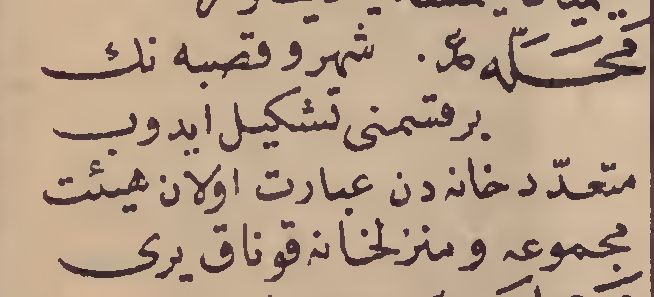 محلّه عر. شهر و قصبه نك
بر قسمنی تشكیل ایدوب
متعدّد خانه دن عبارت اولان هیئت
مجموعه و منزلخانه قوناق یری